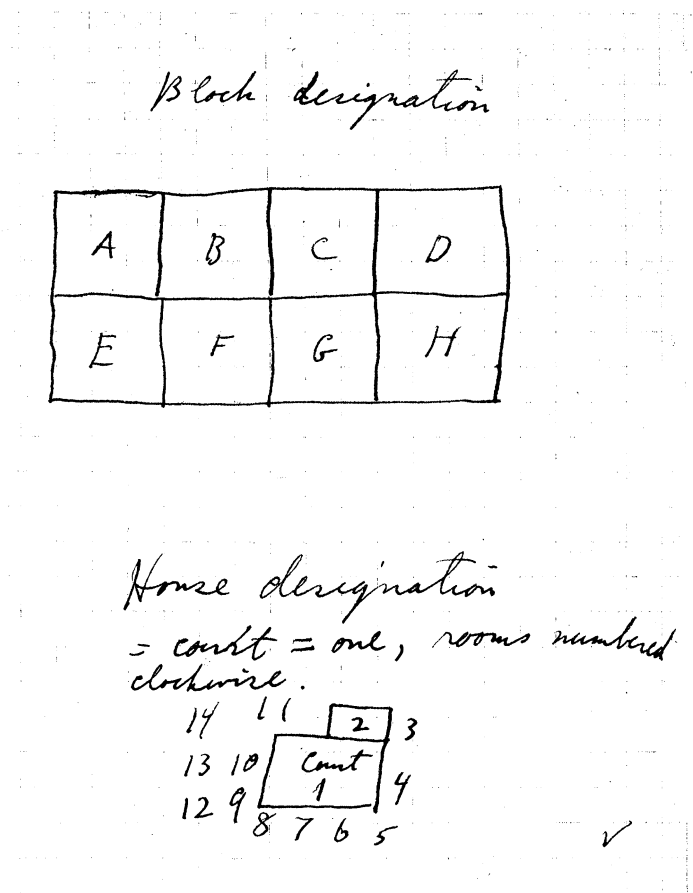 Block designation
A B C D
E F G H
House designation
= court = one, rooms numbered
clockwise.
14 11 2 3
13 10 Court
1 4
12 9
8 7 6 5